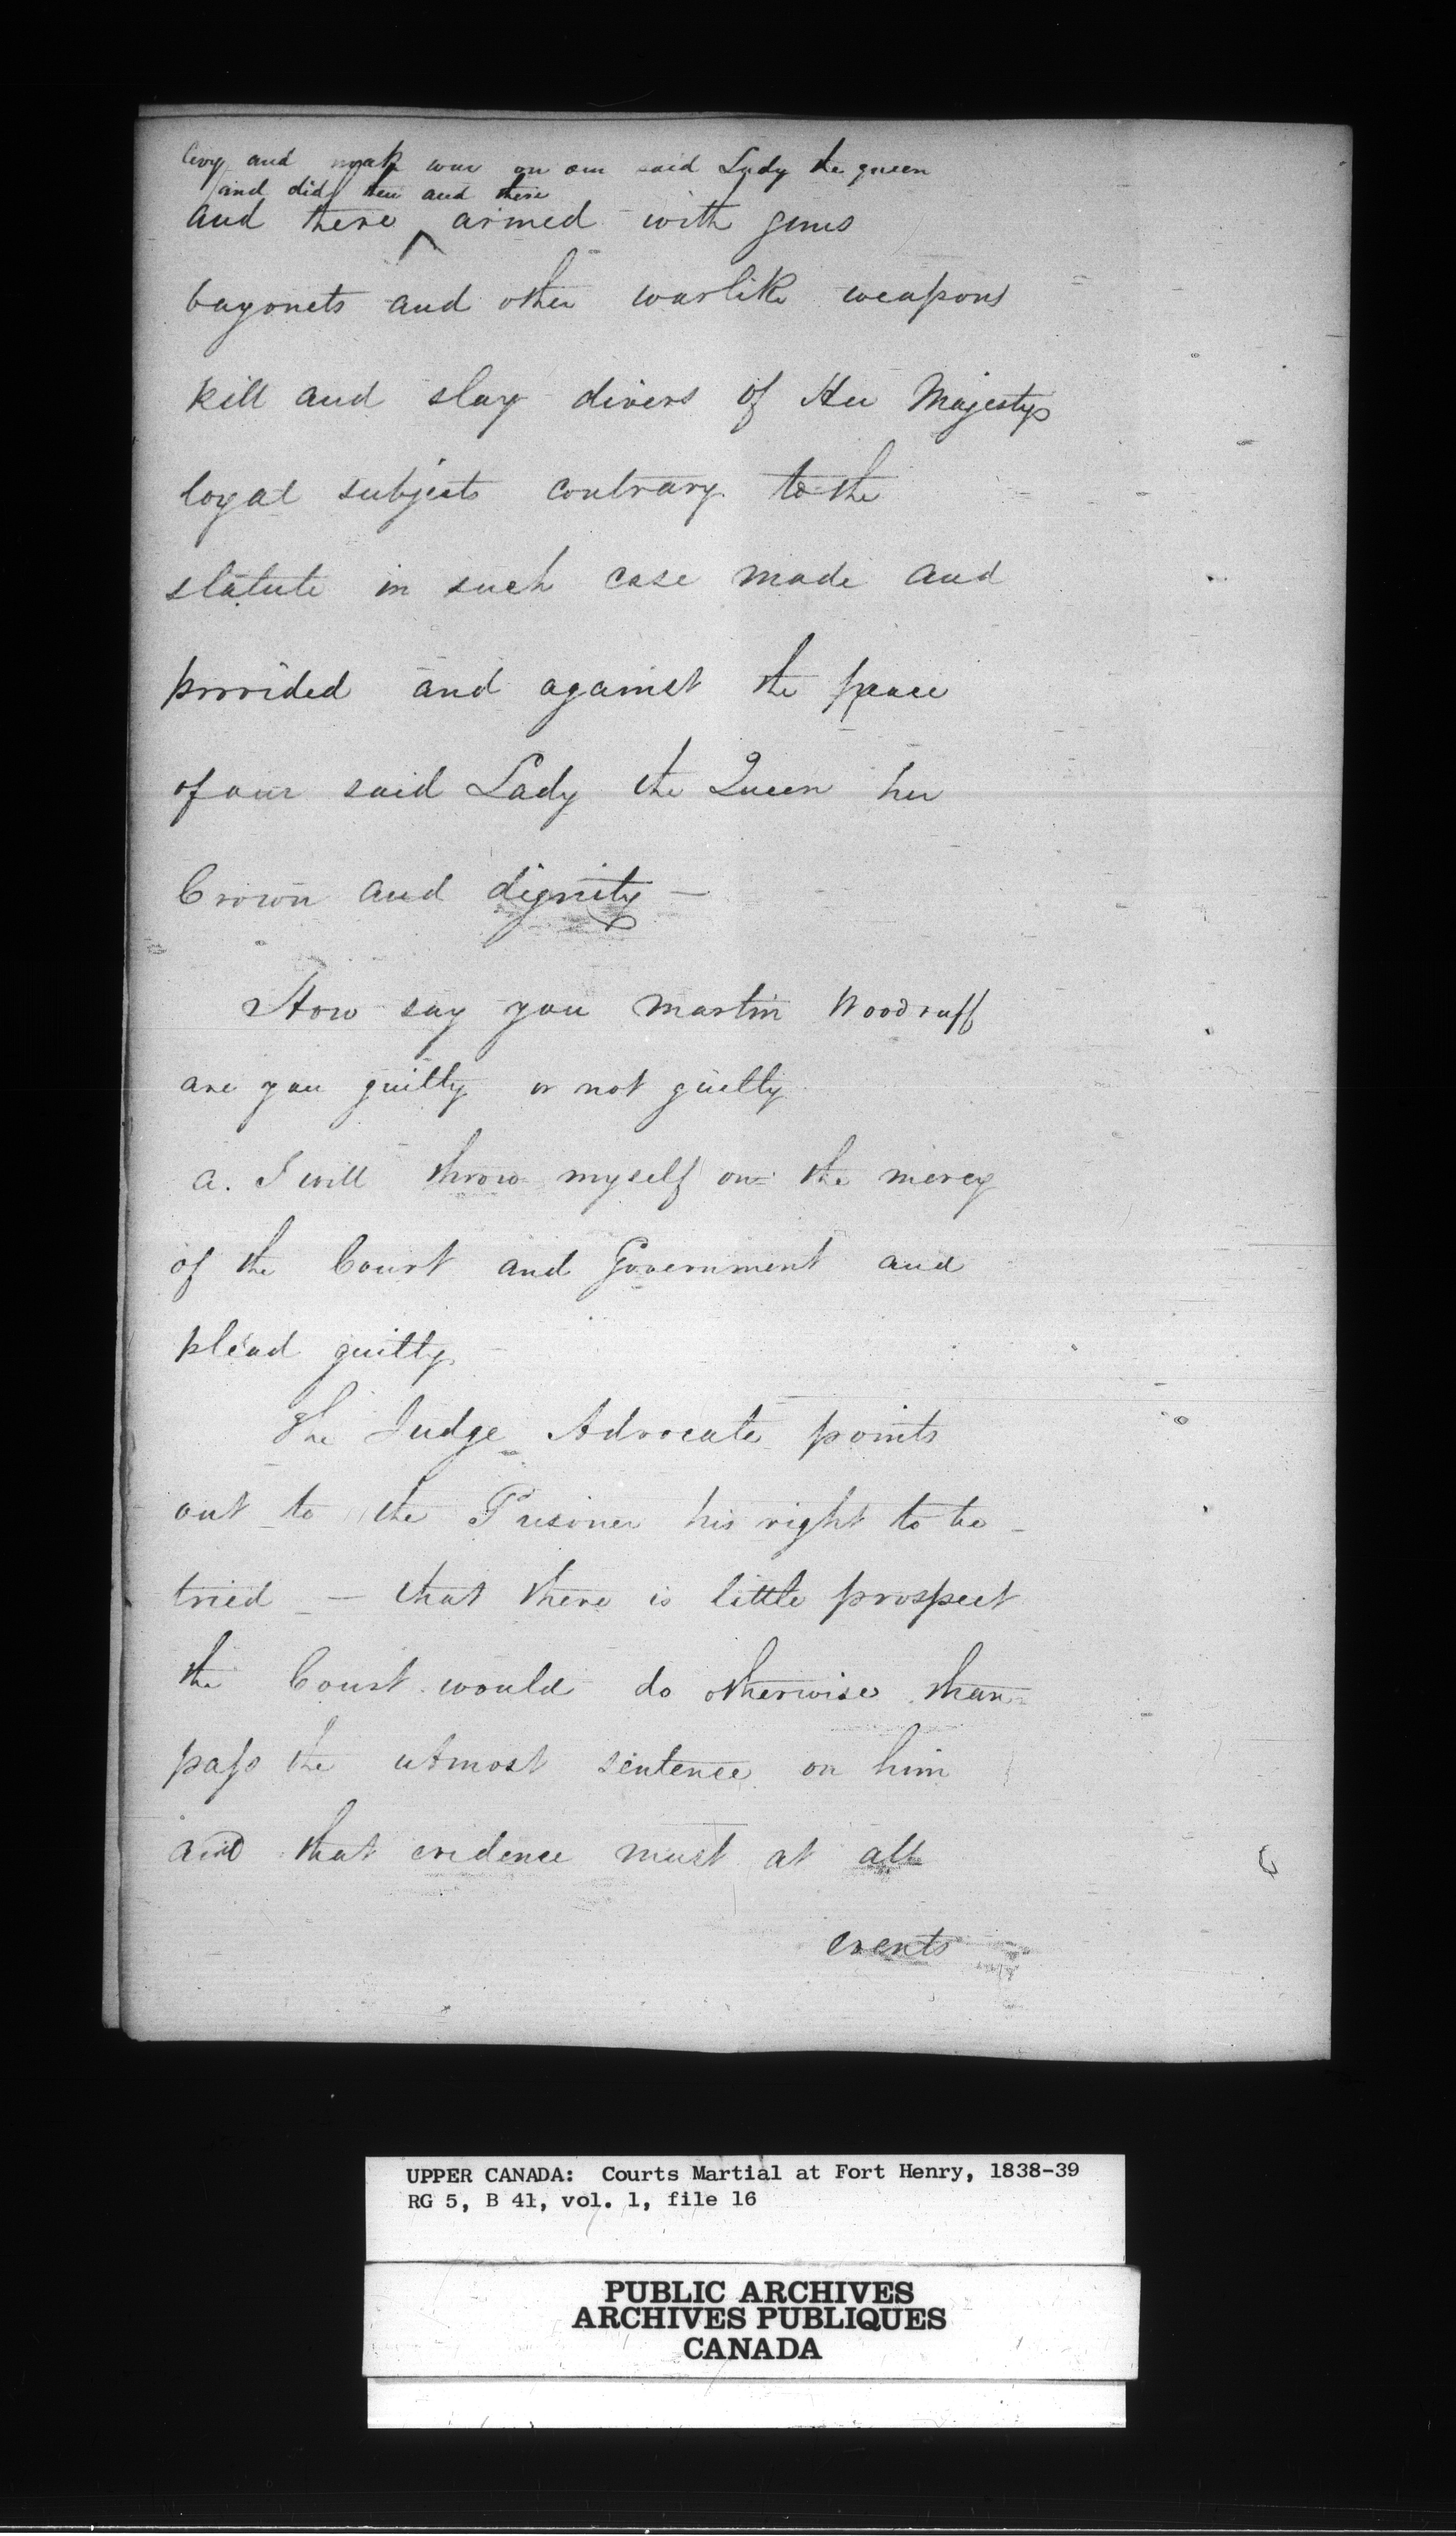 levy and make war on our said Lady the queen
and did then and there
and there ^ armed with guns
bayonets and other warlike weapons
kill and slay divers of Her Majestys
loyal subjects contrary to the
statute in such case made and
provided and against the peace
of our said Lady the Queen her
Crown and dignity —
How say you Martin Woodruff
are you guilty or not guilty
a. I will throw myself on the mercy
of the Court and Government and
plead guilty
The Judge Advocate points
out to the Prisoner his right to be
tried — that there is little prospect
the Court would do otherwise than
pass the utmost sentence on him
and that evidence must at all
events
UPPER CANADA: Courts Martial at Fort Henry, 1838-39
RG 5, B 41, vol. 1, file 16
PUBLIC ARCHIVES
ARCHIVES PUBLIQUES
CANADA